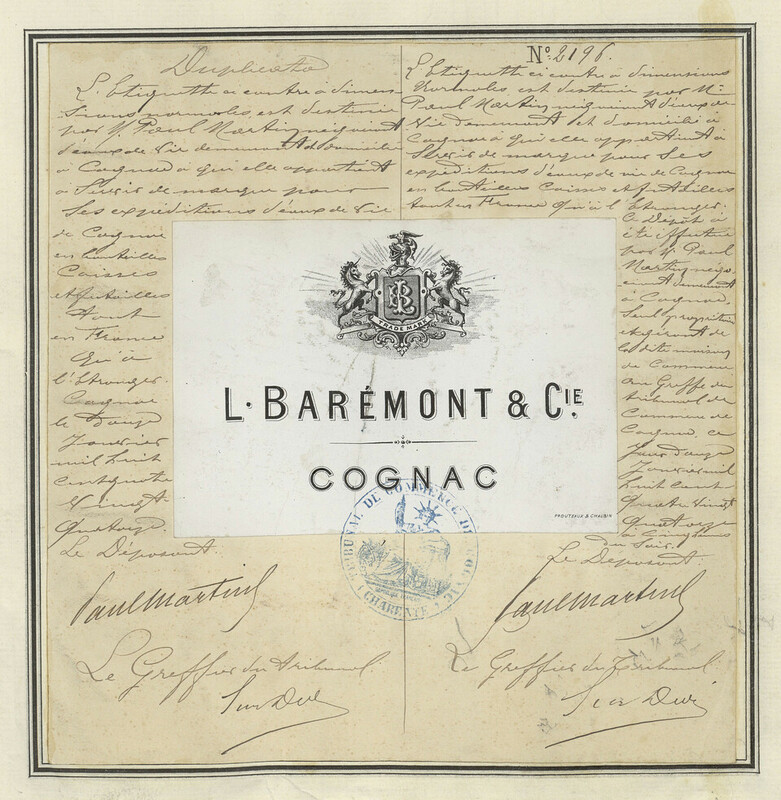 Duplicata
L'Etiquette ci contre à dimen-
sions normales, est destinée
par M. Paul Martin négociant
d'eaux de vie demeurant et domicilié
à Cognac à qui elle appartient
à Servir de marque pour
Ses expéditions d'eaux de vie
de Cognac
en bouteilles
Caisses
et futailles
tant
en France
qu'à
l'Etranger
Cognac
le douze
Janvier
mil huit
cent quatre
vingt
quatorze
Le Déposant.
Paul Martin
Le Greffier du tribunal
No. 2196.
L'Etiquette ci contre à dimensions
Normales est destinée par Mr
Paul Martin négociant d'eaux de
Vie demeurant et domicilié à
Cognac à qui elle appartient à
Servir de marque pour Ses
expéditions d'eaux de vie de Cognac
en bouteilles Caisses et futailles
tant en France qu'à l'Etranger.
Ce Dépôt a
été effectué
par Mr Paul
Martin négo-
ciant demeurant
à Cognac,
Seul propriétaire
et gérant de
la dite maison
de Commerce
au Greffe du
tribunal de
Commerce de
Cognac, ce
jour douze
Janvier mil
huit cent
quatre vingt
quatorze
à cinq heures
du Soir.
Le Déposant.
Paul Martin
Le Greffier du Tribunal
TRADE MARK
L. BARÉMONT & CIE.
COGNAC
PROUTEAUX & CHAUBIN
TRIBUNAL DE COMMERCE DE COGNAC
CHARENTE